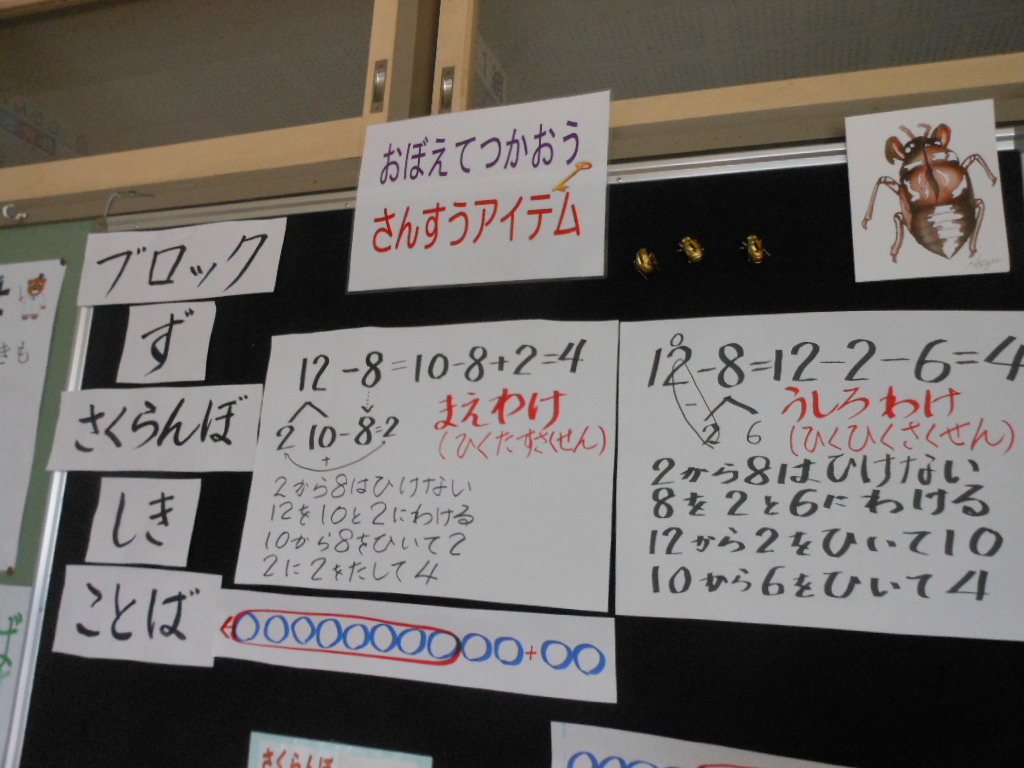 おぼえてつかおう
さんすうアイテム
ブロック
ず
さくらんぼ
しき
ことば
12-8=10-8+2=4
2 10-8=2
+
まえわけ
(ひくたすさくせん)
2から8はひけない
12を10と2にわける
10から8をひいて2
2に2をたして4
12-8=12-2-6=4
0
-
2 6
うしろわけ
(ひくひくさくせん)
2から8はひけない
8を2と6にわける
12から2をひいて10
10から6をひいて4
+
きも
さくらんぼ